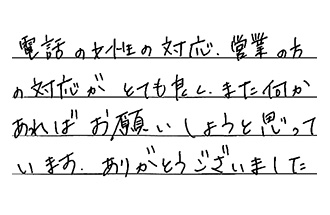 電話の女性の対応、営業の方
の対応がとても良く、また何か
あればお願いしようと思って
います。ありがとうございました